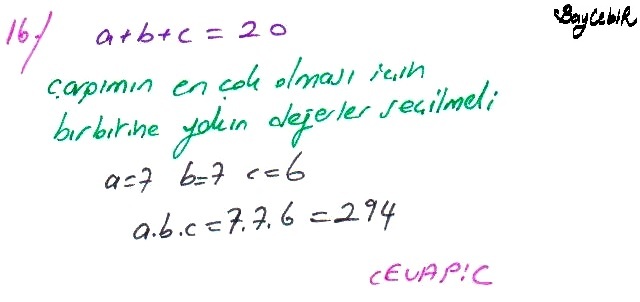 BayCebiR
16./ a+b+c = 20
çarpımın en çok olması için
birbirine yakın değerler seçilmeli
a=7 b=7 c=6
a.b.c = 7.7.6 = 294
CEVAP:C